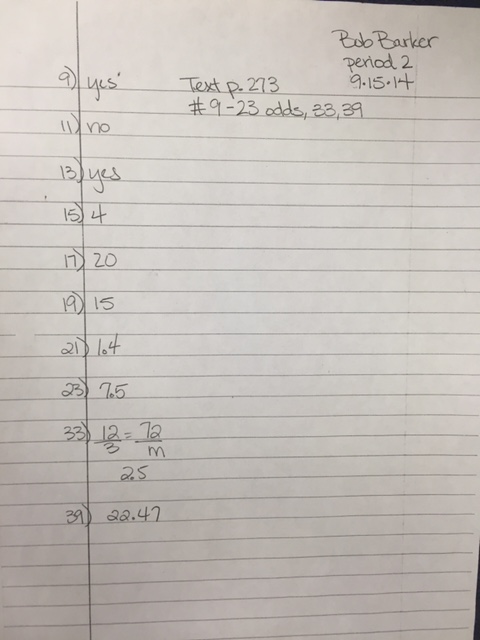 Bob Barker
period 2
9.15.14
Text p. 273
# 9-23 odds, 33, 39
9) yes
11) no
13) yes
15) 4
17) 20
19) 15
21) 1.4
23) 7.5
33) 12/3 = 72/m
2.5
39) 22.47